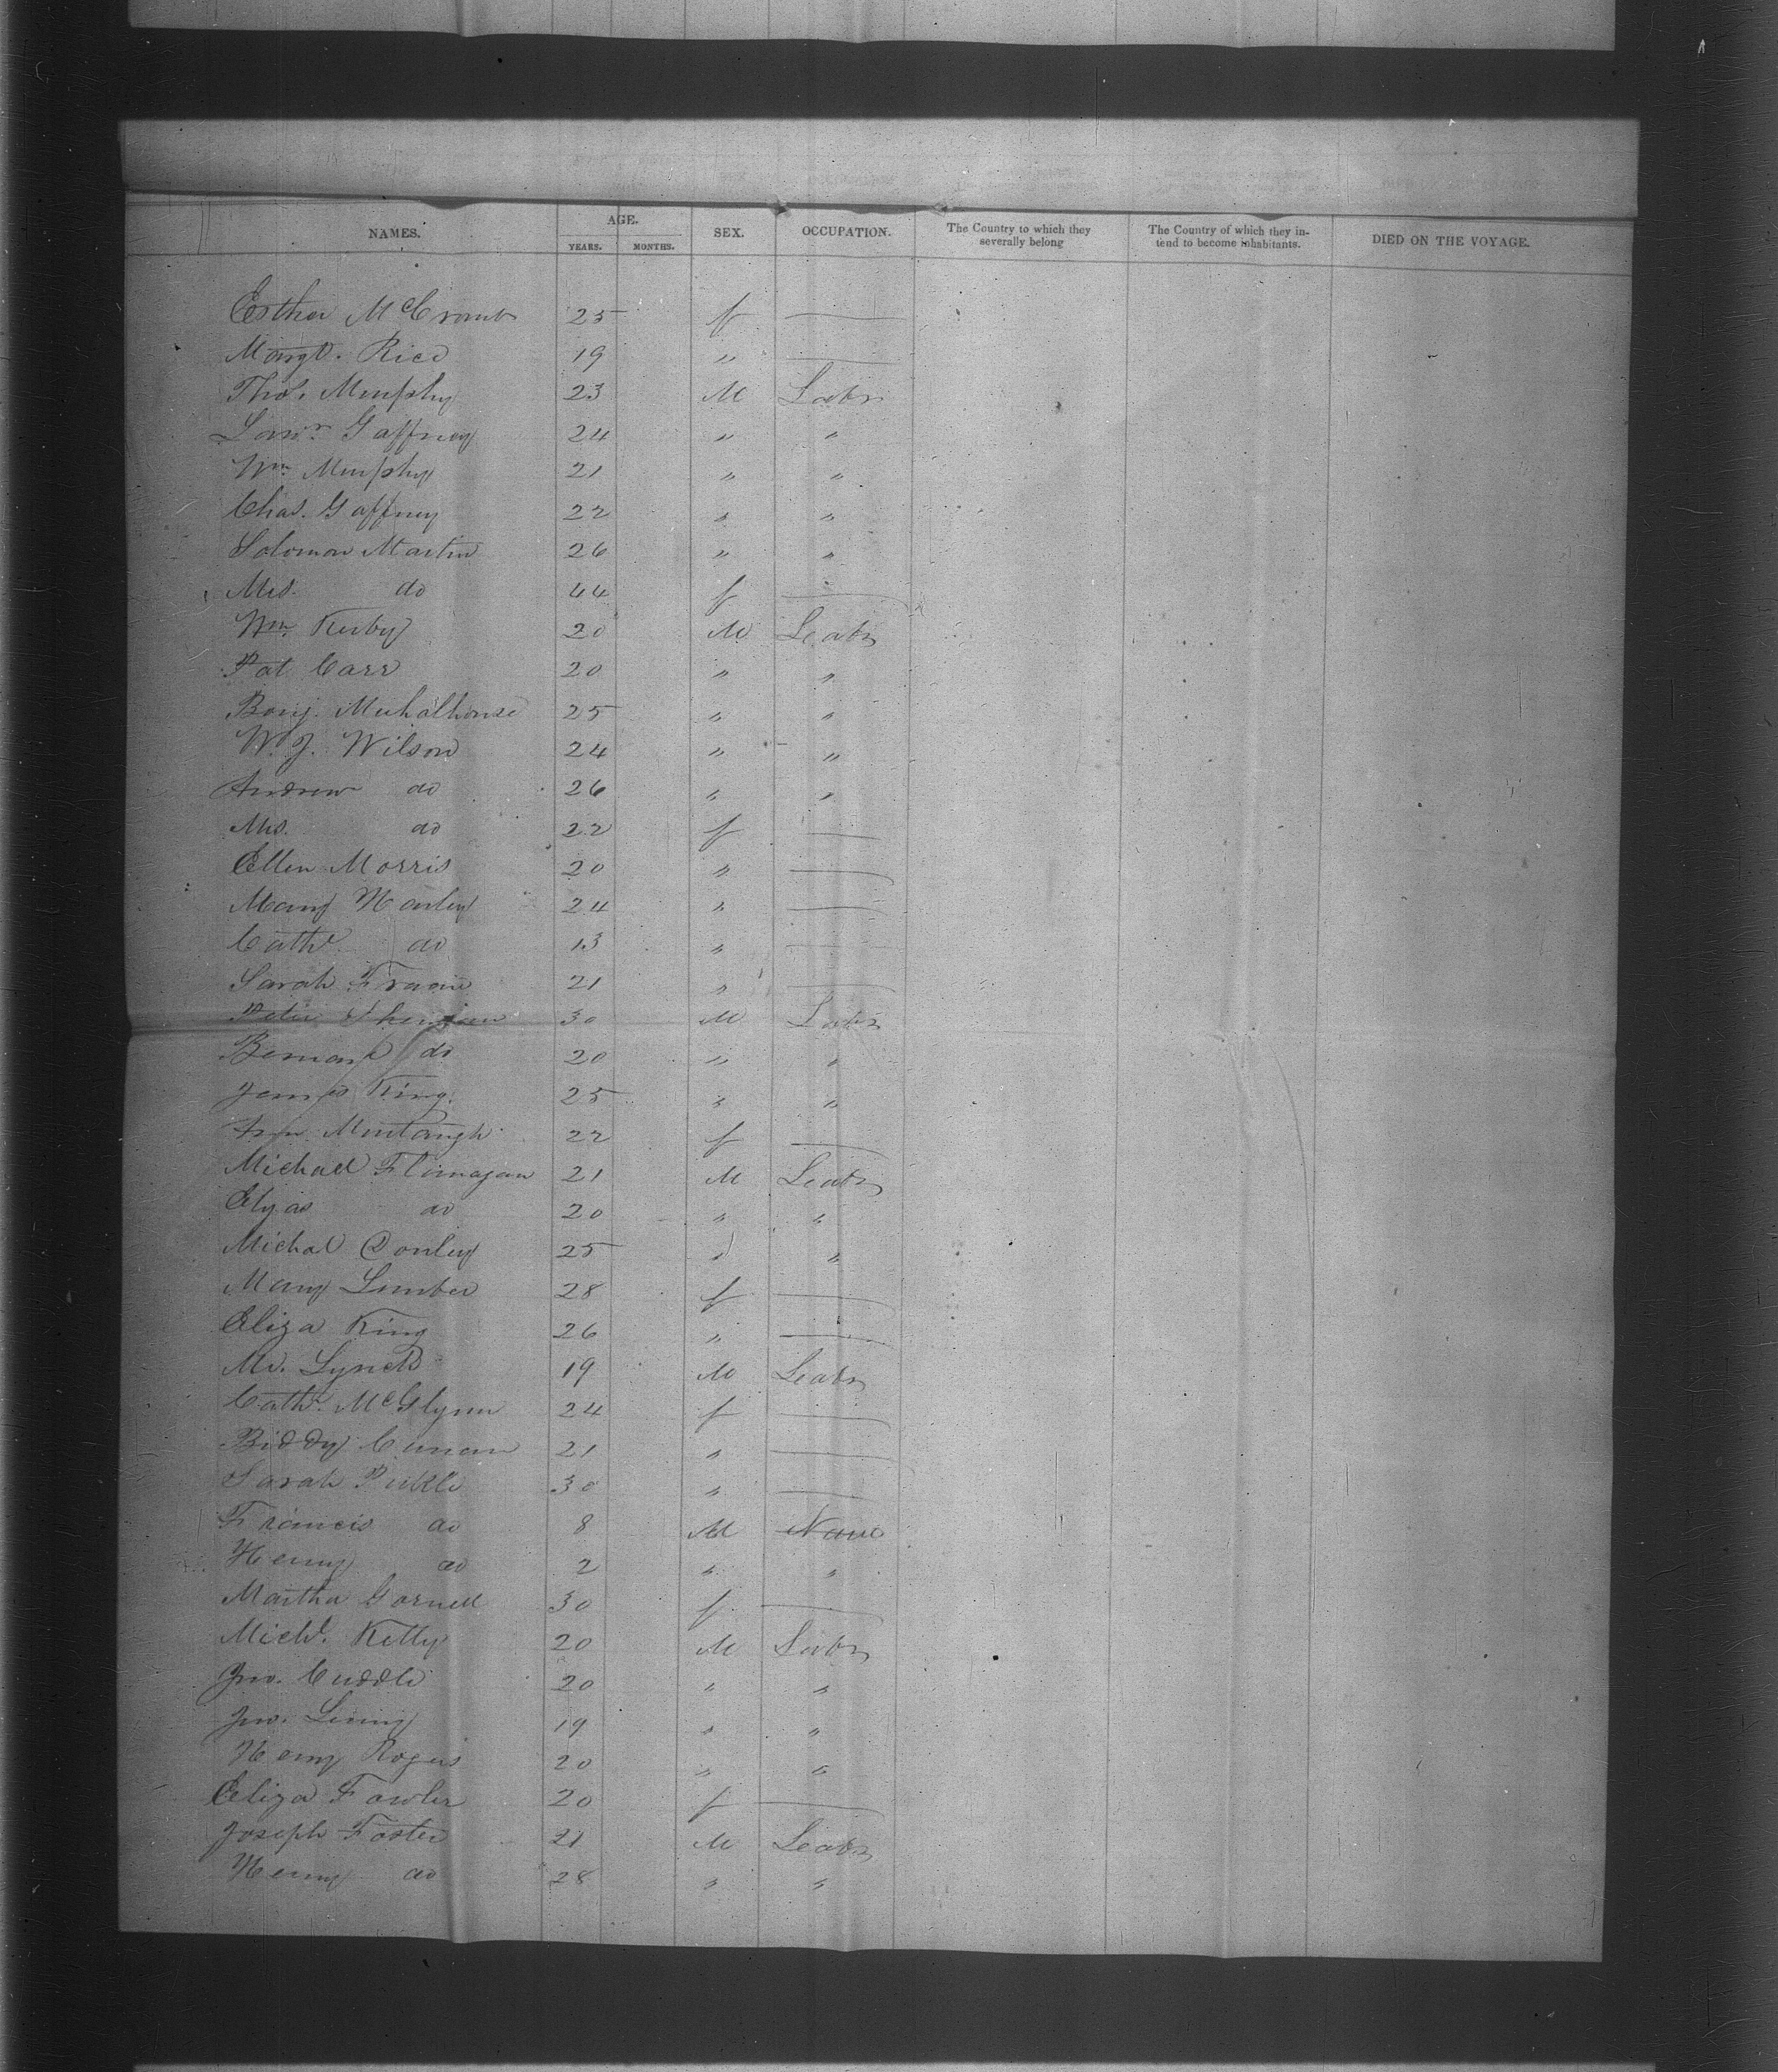 NAMES. AGE. SEX. OCCUPATION. The Country to which they severally belong The Country of which they intend to become inhabitants. DIED ON THE VOYAGE.
YEARS. MONTHS.
Esther McCromb 25 f —
Margt. Rice 19 " —
Thos. Murphy 23 M Labr
Lawr. Gaffney 24 " "
Wm. Murphy 21 " "
Chas. Gaffney 22 " "
Solomon Martin 26 " "
Mrs. do 44 f —
Wm. Kirby 20 M Labr
Pat Carr 20 " "
Benj. 25 " "
W. J. Wilson 24 " "
Andrew do 26 " "
Mrs. do 22 f —
Ellen Morris 20 " —
Mary Hanley 24 " —
Cathe. do 13 " —
Sarah 21 " —
Peter Sheridan 30 M Labr
Bernard do 20 " "
James King. 25 " "
Ann Murtaugh 22 f —
Michael Flanagan 21 M Labr
Elyas do 20 " "
Michal Conley 25 " "
Mary Limber 28 f —
Eliza King 26 " —
Mr. Lynch 19 M Labr
Cathe. McGlynn 24 f —
Biddy Cunan 21 " —
Sarah Pickle 30 " —
Francis do 8 M None
Henry do 2 " "
Martha Gornell 30 f —
Michl. Kelly 20 M Labr
Jno. Cuddle 20 " "
Jno. 19 " "
Henry Rogers 20 " "
Eliza Fowler 20 f —
Joseph Foster 21 M Labr
Henry do 28 " "